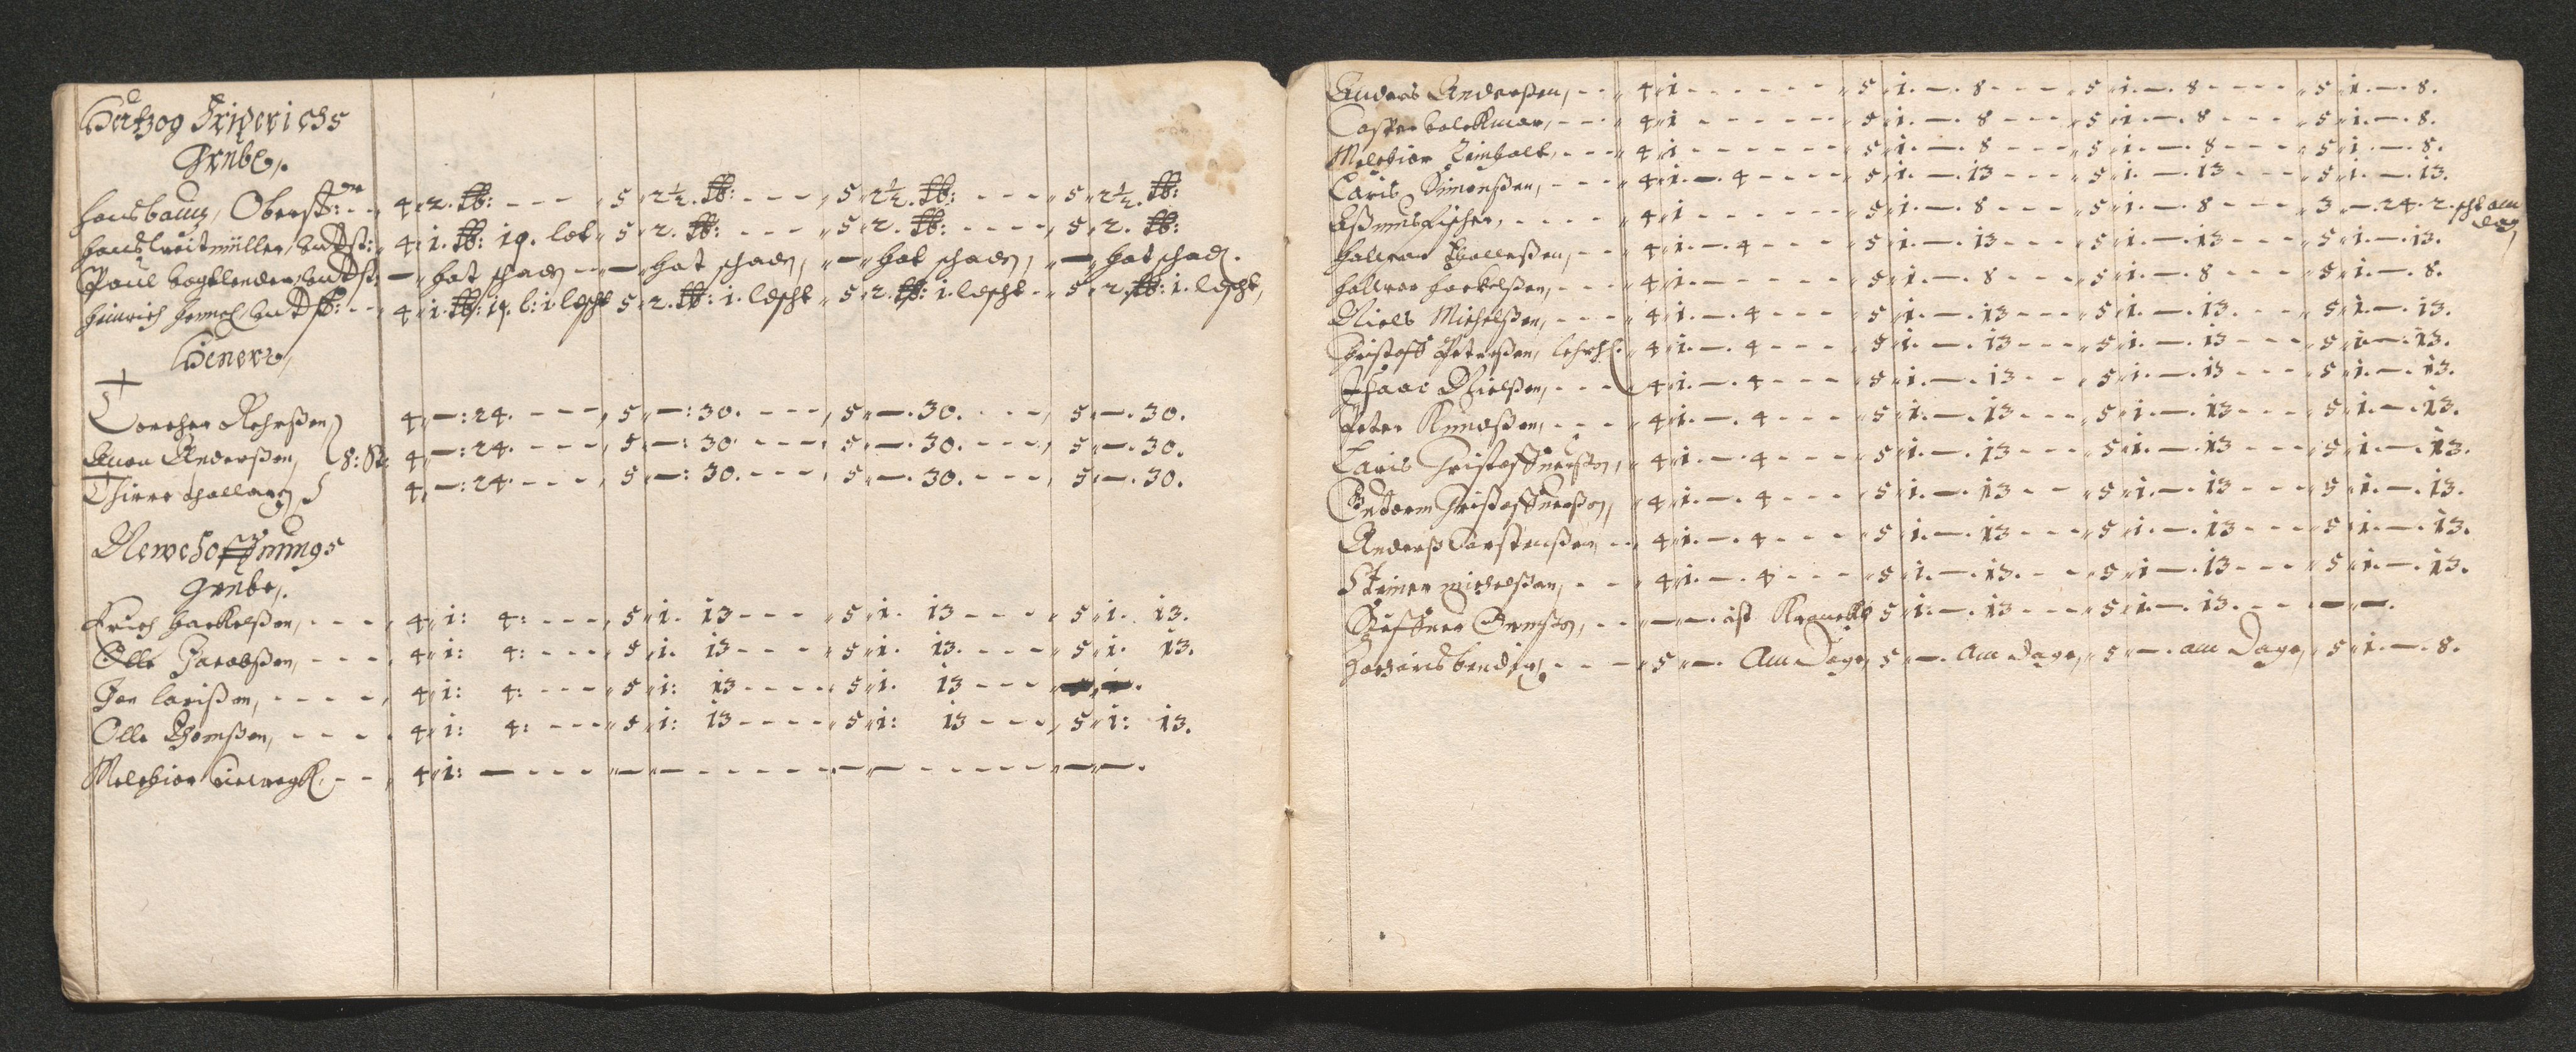 Hertzog Friderichs
Grube,
Hans bauz, Oberst: - - 4 „ 2. ℔: - - - 5 „ 2½. ℔: - - - 5 „ 2½. ℔: - - - 5 „ 2½. ℔:
Hans breitmüller, undst: 4 „ 1. ℔: 19. lot „ 5 „ 2. ℔: - - - 5 „ 2. ℔: - - - - 5 „ 2. ℔:
Paul Vogtlender, undst: — „ hat schaden - - — „ hat schaden, „ — „ hat schaden, „ — „ hat schad.
Heinrich undst: - - 4 „ 1. ℔: 19. l: 1. lescht 5 „ 2. ℔: 1. lescht „ 5 „ 2. ℔: 1. lescht - 5 „ 2. ℔: 1. lescht,
Hewer,
Torcher Rehrßen 4 „ —: 24. - - - - , 5 „ —: 30. - - - - , 5 „ —. 30. - - - - , 5 „ —. 30.
Anderßen, 8: St: 4 „ —: 24. - - - - , 5 „ —: 30. - - - - , 5 „ —. 30. - - - - , 5 „ —. 30.
4 „ —: 24. - - - - , 5 „ —: 30. - - - - , 5 „ —. 30. - - - - , 5 „ —. 30.
Newehoffnungs
Grube,
Erich Harkelßen, - - - - , 4 „ 1: 4: - - - - „ 5 „ 1. 13 - - - - „ 5 „ 1. 13 - - - - „ 5 „ 1. 13.
Olle Jacobßen, - - - - 4 „ 1: 4: - - - - „ 5 „ 1. 13 - - - - „ 5 „ 1. 13. - - - - „ 5 „ 1. 13.
Jon larißen, - - - - - , 4 „ 1: 4: - - - - „ 5 „ 1: 13 - - - - „ 5 „ 1. 13 - - - -
Olle Thomßen, - - - - 4 „ 1: 4: - - - - „ 5 „ 1: 13 - - - - „ 5 „ 1: 13 - - - - , 5 „ 1: 13.
Melchior - - , 4 „ 1: — - - - - „ — „ — - - - - - - „ — „ — - - - - - - „ — „ —.
Anders Anderßen, - - „ 4 „ 1 - - - - - - - „ 5 „ 1. —. 8 - - - - „ 5 „ 1. —. 8 - - - - „ 5 „ 1. —. 8.
Casper - - - „ 4 „ 1 - - - - - - - „ 5 „ 1. —. 8 - - - - „ 5 „ 1. —. 8 - - - - „ 5 „ 1. —. 8.
Melchior Leinbolt, - - - „ 4 „ 1 - - - - - - - „ 5 „ 1. —. 8 - - - - „ 5 „ 1. —. 8 - - - - „ 5 „ 1. —. 8.
Laris Simenßen, - - - - „ 4 „ 1. —. 4 - - - - „ 5 „ 1. —. 13 - - - „ 5 „ 1. —. 13 - - - - „ 5 „ 1. —. 13.
Eßmus Fischer, - - - - - „ 4 „ 1 - - - - - - - „ 5 „ 1. —. 8 - - - - „ 5 „ 1. —. 8 - - - - „ 3 „ —. 24. 2. scht am
dag,
Halvor Tholleßen, - - „ 4 „ 1. —. 4 - - - - „ 5 „ 1. —. 13 - - - „ 5 „ 1. —. 13 - - - - „ 5 „ 1. —. 13.
Halvor Harkelßen, - - - „ 4 „ 1. - - - - - - - „ 5 „ 1. —. 8 - - - - „ 5 „ 1. —. 8 - - - - „ 5 „ 1. —. 8.
Niels Michelßen, - - - „ 4 „ 1. —. 4 - - - - „ 5 „ 1. —. 13 - - - „ 5 „ 1. —. 13. - - - „ 5 „ 1. —. 13.
Christoff Peterßen, „ 4 „ 1. —. 4 - - - - „ 5 „ 1. —. 13 - - - „ 5 „ 1. —. 13 - - - - „ 5 „ 1. —. 13.
Isaac Nielßen, - - - 4 „ 1. —. 4 - - - - „ 5 „ 1. —. 13 - - - „ 5 „ 1. —. 13 - - - - „ 5 „ 1. —. 13.
Peter Knudßen, - - - „ 4 „ 1. —. 4 - - - - „ 5 „ 1. —. 13 - - - „ 5 „ 1. —. 13 - - - - „ 5 „ 1. —. 13.
Laris Christoffnerßen, „ 4 „ 1. —. 4 - - - - „ 5 „ 1. —. 13 - - - „ 5 „ 1. —. 13 - - - - „ 5 „ 1. —. 13.
Gudtorm Christoffnerßen, „ 4 „ 1. —. 4 - - - - „ 5 „ 1. —. 13 - - - „ 5 „ 1. —. 13 - - - - „ 5 „ 1. —. 13.
Anderß Torstenßen - - 4 „ 1. —. 4 - - - - „ 5 „ 1. —. 13 - - - „ 5 „ 1. —. 13 - - - - „ 5 „ 1. —. 13.
Steiner Michelßen, - - „ 4 „ 1. —. 4 - - - - „ 5 „ 1. —. 13. - - - „ 5 „ 1. —. 13 - - - - „ 5 „ 1. —. 13.
- - „ — „ —. ist Kranckh 5 „ 1. —. 13 - - - - „ 5 „ 1. —. 13. - - - - — „ —.
- - - „ 5 „ —. Am Dage, 5 „ —. Am Dage, „ 5 „ —. am Dage, „ 5 „ 1. —. 8.